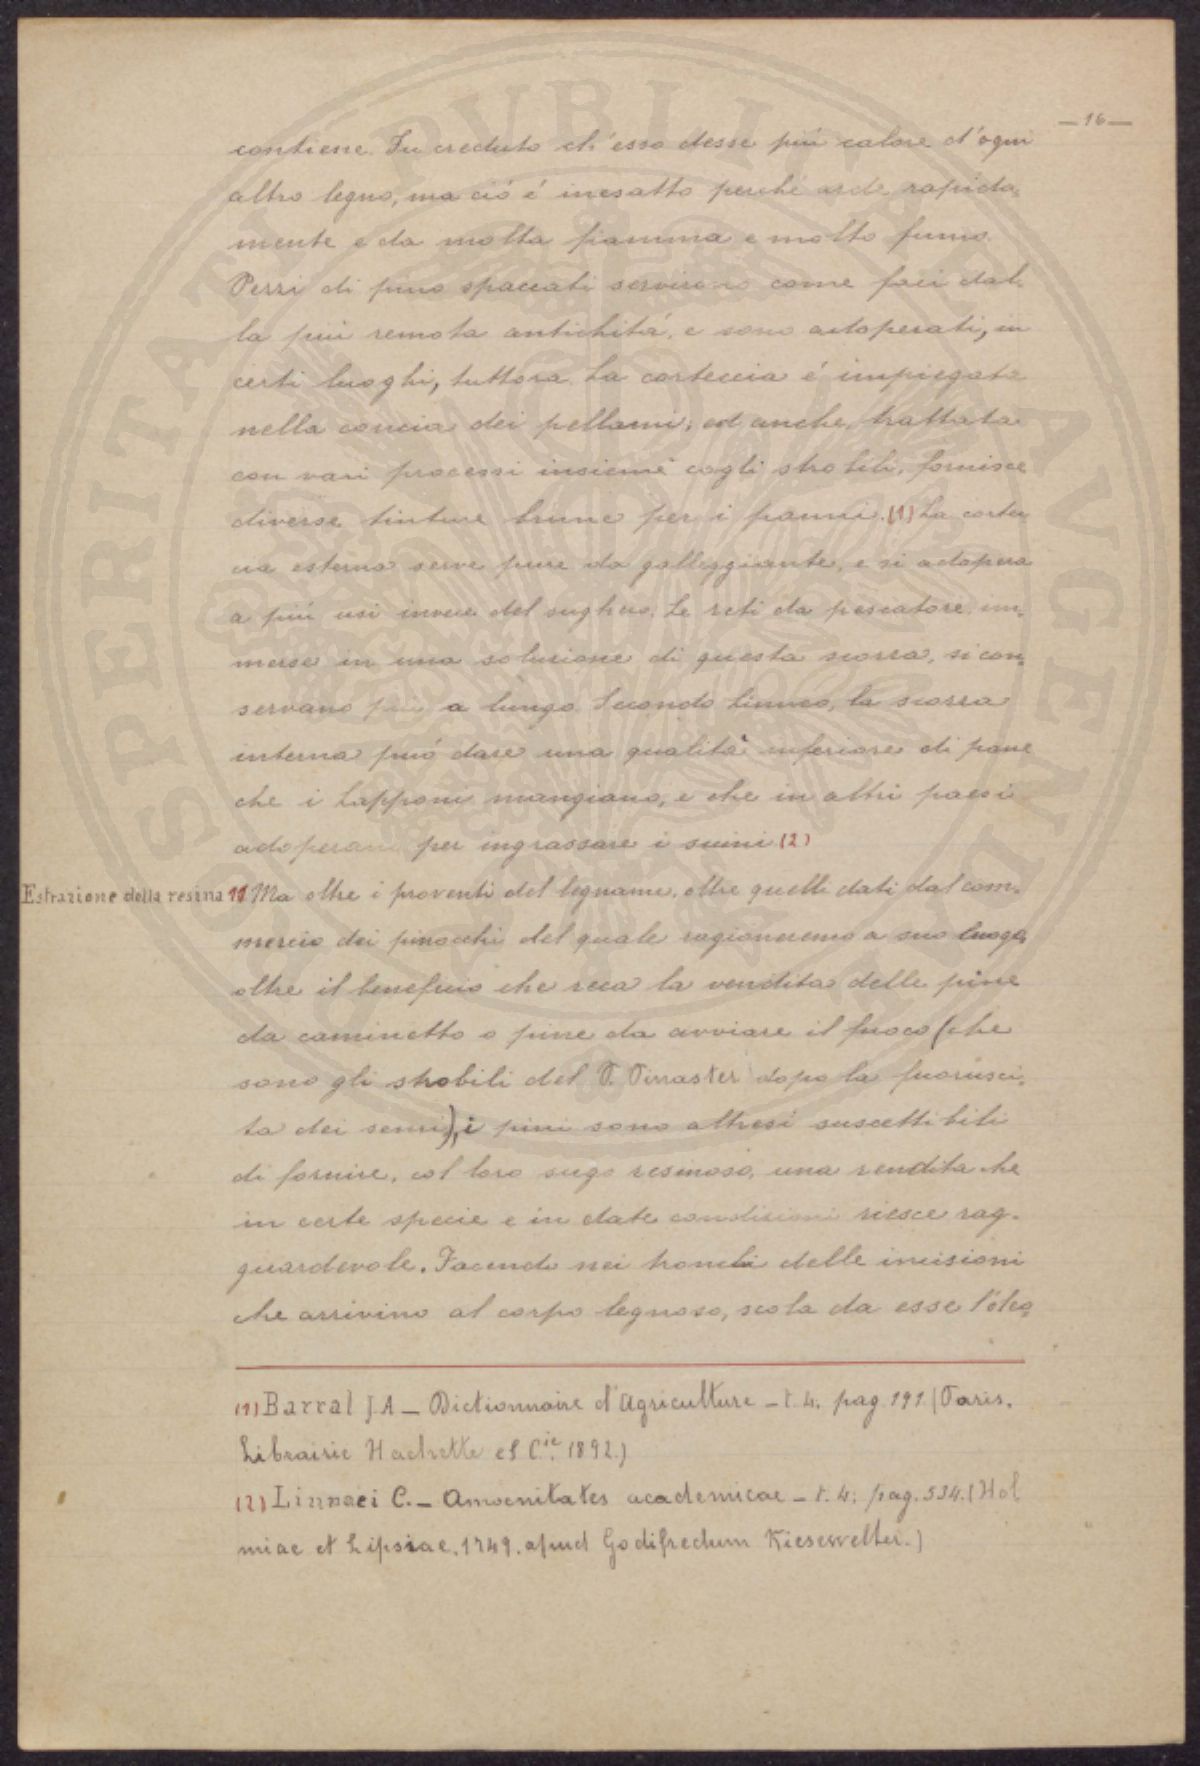 — 16 —
contiene. Fu creduto ch'esso desse più calore d'ogni
altro legno, ma ciò é inesatto perché arde rapida-
mente e da molta fiamma e molto fumo.
Pezzi di pino spaccati servirono come faci dal-
la più remota antichità, e sono adoperati, in
certi luoghi, tuttora. La corteccia é impiegata
nella concia dei pellami; ed anche, trattata
con vari processi insieme cogli strobili, fornisce
diverse tinture brune per i panni. (1) La cortec
cia esterna serve pure da galleggiante, e si adopera
a più usi invece del sughero. Le reti da pescatore im-
merse in una soluzione di questa scorza, si con-
servano più a lungo. Secondo Linneo, la scorza
interna può dare una qualità inferiore di pane
che i Lapponi mangiano, e che in altri paesi
adoperano per ingrassare i suini (2)
Estrazione della resina 11 Ma oltre i proventi del legname, oltre quelli dati dal com-
mercio dei pinocchi del quale ragioneremo a suo luogo,
oltre il beneficio che reca la vendita delle pine
da caminetto o pine da avviare il fuoco (che
sono gli strobili del P. Pinaster dopo la fuorusci-
ta dei semi), i pini sono altresì suscettibili
di fornire, col loro sugo resinoso, una rendita che
in certe specie e in date condizioni riesce rag-
guardevole. Facendo nei tronchi delle incisioni
che arrivino al corpo legnoso, scola da esse l'oleo-
(1) Barral J.A — Dictionnaire d'Agriculture — t. 4. pag 191. (Paris.
Librairie Hachette et C.ie 1892.)
(2) Linnaei C. — Amoenitates academicae — t. 4: pag. 534. (Hol
miae et Lipsiae. 1749. apud Godifredum Kiesewelter.)
PROSPERITATI PVBLICAE AVGENDAE